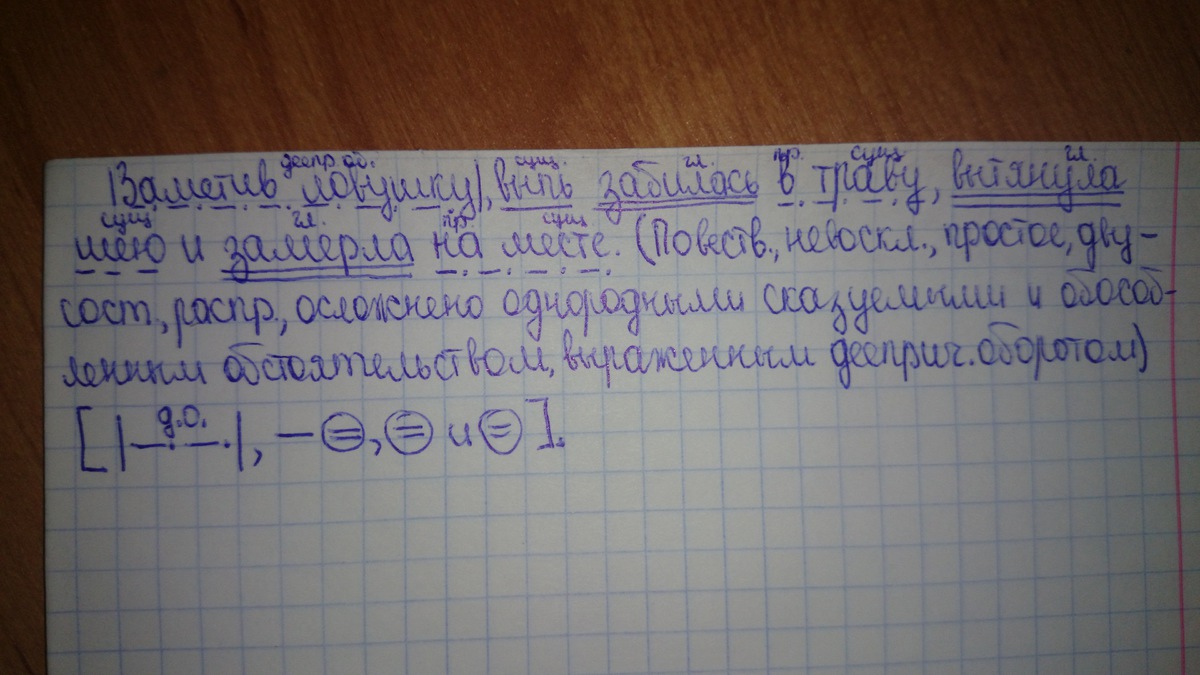 деепр. об. сущ. гл. пр. сущ. гл.
|Заметив ловушку|, выпь забилась в траву, вытянула
сущ гл. пр. сущ
шею и замерла на месте. (Повеств., невоскл., простое, дву-
сост., распр., осложнено однородными сказуемыми и обособ-
ленным обстоятельством, выраженным дееприч. оборотом)
д.о.
[|—·—·|, — =, = и =].